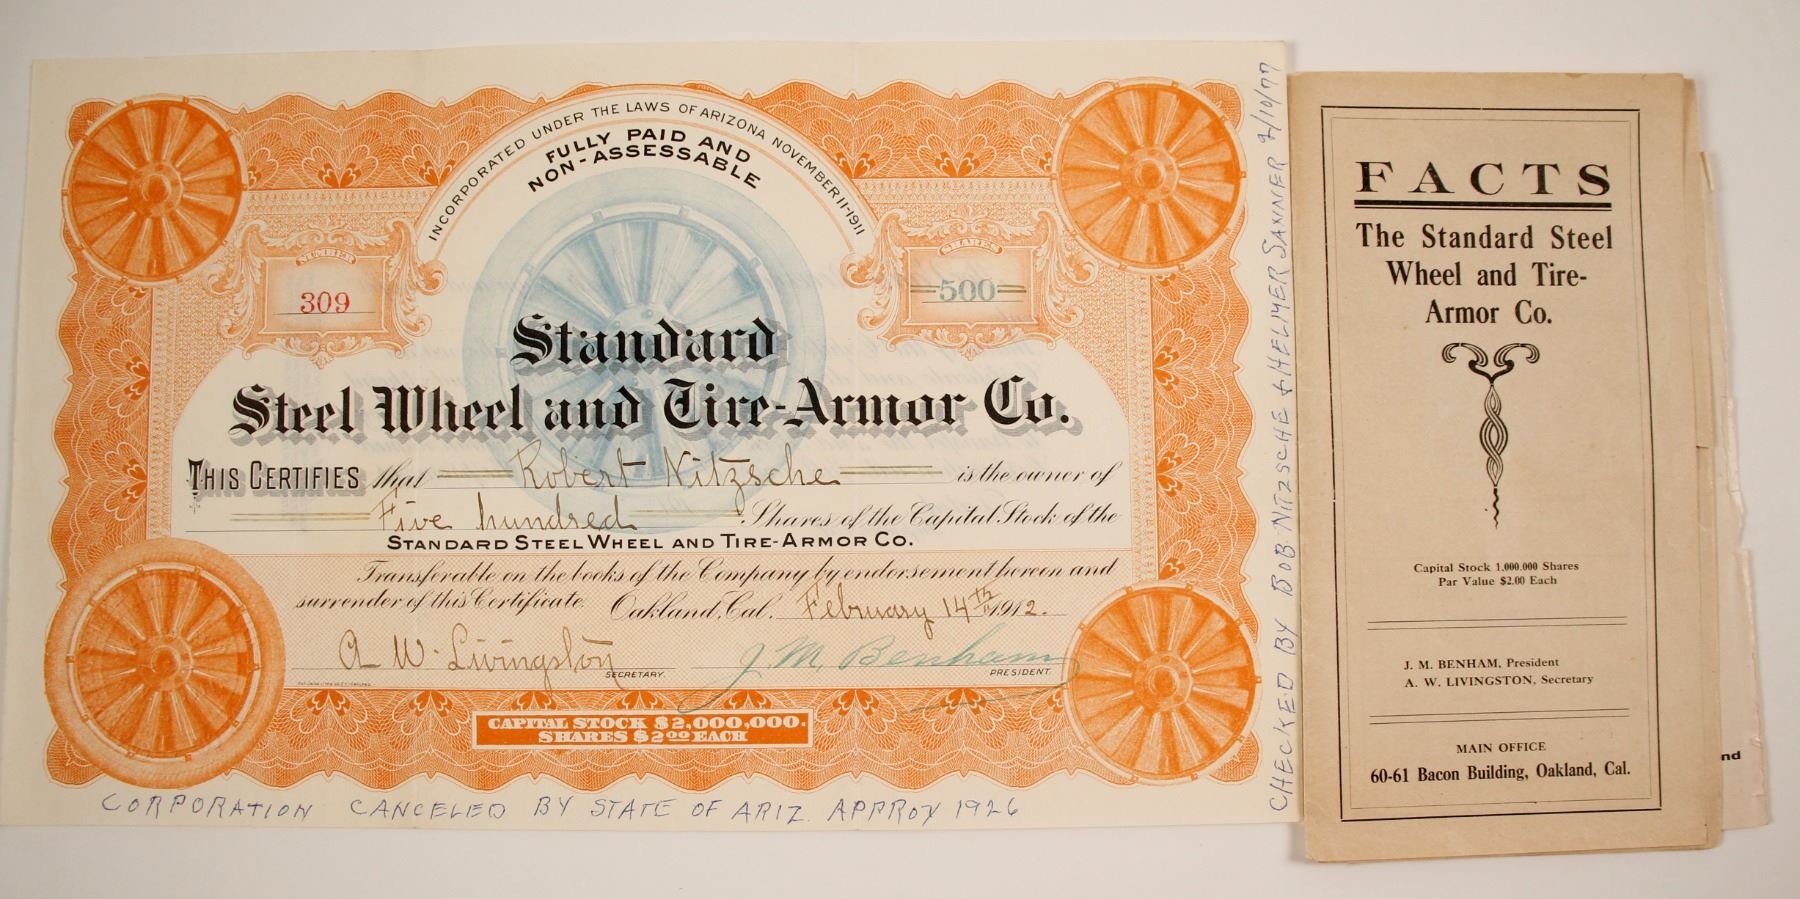 INCORPORATED UNDER THE LAWS OF ARIZONA NOVEMBER 11-1911
FULLY PAID AND
NON-ASSESSABLE
NUMBER
309
SHARES
500
Standard
Steel Wheel and Tire-Armor Co.
THIS CERTIFIES that Robert Nitzsche is the owner of
Five hundred Shares of the Capital Stock of the
STANDARD STEEL WHEEL AND TIRE-ARMOR CO.
Transferable on the books of the Company by endorsement hereon and
surrender of this Certificate. Oakland, Cal. February 14th 1912.
A. W. Livingston
SECRETARY.
J. M. Benham
PRESIDENT.
CAPITAL STOCK $2,000,000.
SHARES $2.00 EACH
CORPORATION CANCELED BY STATE OF ARIZ. APPROX 1926
CHECKED BY BOB NITZSCHE & HELMER SANNER 2/10/77
FACTS
The Standard Steel
Wheel and Tire-
Armor Co.
Capital Stock 1,000.000 Shares
Par Value $2.00 Each
J. M. BENHAM, President
A. W. LIVINGSTON, Secretary
MAIN OFFICE
60-61 Bacon Building, Oakland, Cal.
nd